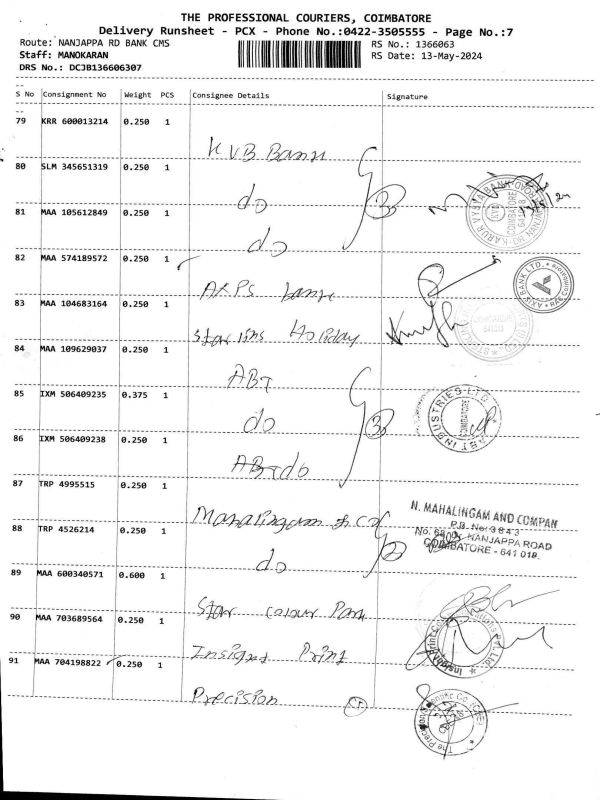 THE PROFESSIONAL COURIERS, COIMBATORE
Delivery Runsheet - PCX - Phone No.:0422-3505555 - Page No.:7
Route: NANJAPPA RD BANK CMS
RS No.: 1366063
Staff: MANOKARAN
RS Date: 13-May-2024
DRS No.: DCJB136606307
S No Consignment No Weight PCS Consignee Details Signature
79 KRR 600013214 0.250 1
KVB Bank
80 SLM 345651319 0.250 1
do
81 MAA 105612849 0.250 1
do
82 MAA 574189572 0.250 1
AXPS bank
83 MAA 104683164 0.250 1
Star lins Holiday
84 MAA 109629037 0.250 1
ABT
85 IXM 506409235 0.375 1
do
86 IXM 506409238 0.250 1
ABT do
87 TRP 4995515 0.250 1
Mahalingam & Co
88 TRP 4526214 0.250 1
do
89 MAA 600340571 0.600 1
Star Colour Park
90 MAA 703689564 0.250 1
Insigns Print
91 MAA 704198822 0.250 1
Precision
KARUR VYSYA BANK
COIMBATORE
AXIS BANK LTD.
ABT INDUSTRIES LTD.
COIMBATORE
N. MAHALINGAM AND COMPAN
P.B. No: 3843
NANJAPPA ROAD
COIMBATORE - 641 018.